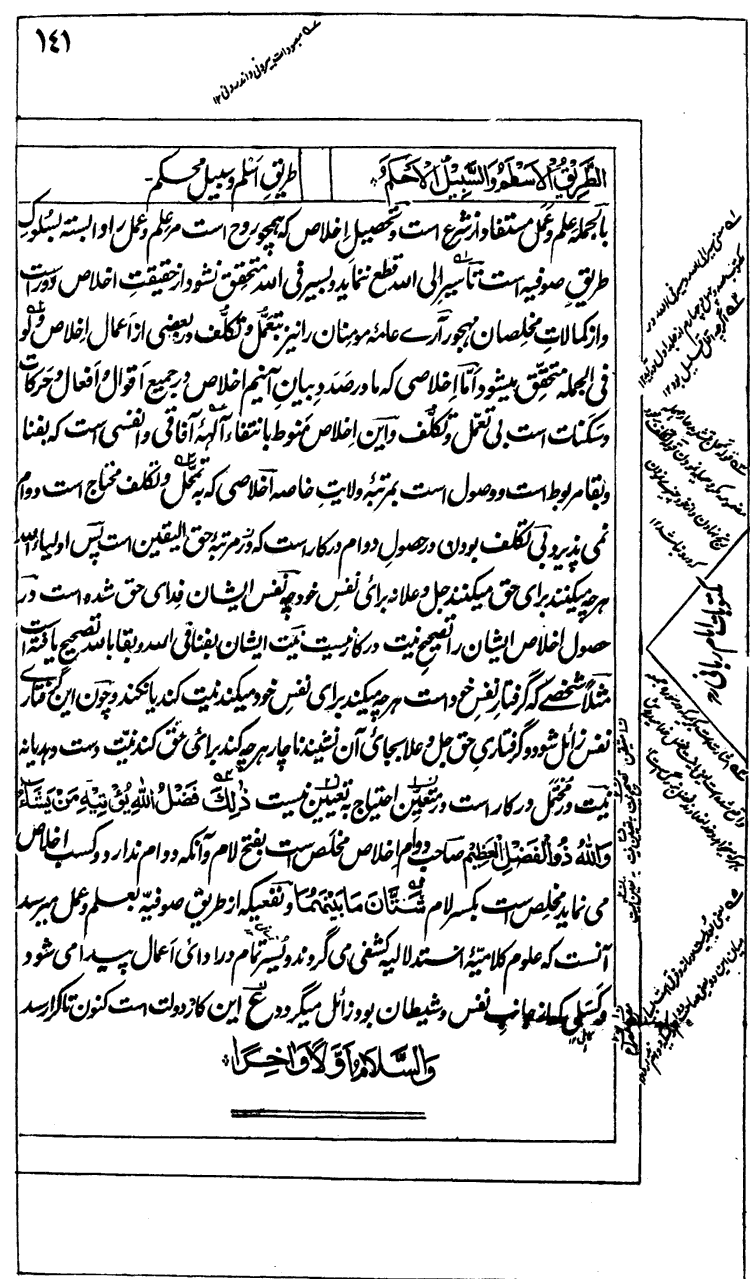 ١٤١
الطَّرِيْقُ الْاَسْلَمُ وَالسَّبِيْلُ الْاَحْكَمُ
طریقِ اسلم و سبیل محکم
بالجملہ علم و عمل مستفاد از شرع است و تحصیلِ اخلاص کہ ہمچو روح است مر علم و عمل را وابستہ بسلوکِ
طریقِ صوفیہ است تا سیر الی اللہ قطع ننماید و بسیر فی اللہ متحقق نشود از حقیقتِ اخلاص دور است
و از کمالات مخلصان مہجور آرے عامۂ مومنان را نیز بتعمل و تکلف در بعضی از اعمال اخلاص ولو
فی الجملہ متحقق میشود اما اخلاصی کہ ما درصدد بیانِ آنیم اخلاص در جمیع اقوال و افعال و حرکات
و سکنات است بی تعمل و تکلف و این اخلاص منوط بانتفاء آلہۂ آفاقی و انفسی است کہ بفنا
و بقا مربوط است و وصول است بمرتبۂ ولایتِ خاصہ اخلاصی کہ بہ تمحل و تکلف محتاج است دوام
نمی پذیرد بی تکلف بودن در حصولِ دوام درکار است کہ در مرتبۂ حق الیقین است پس اولیاء اللہ
ہرچہ میکنند برای حق میکنند جل و علا نہ برای نفسِ خود چہ نفس ایشان فدای حق شدہ است در
حصول اخلاص ایشان را تصحیح نیت درکار نیست نیت ایشان بفنا فی اللہ و بقا باللہ تصحیح یافتہ است
مثلاً شخصے کہ گرفتار نفس خود است ہرچہ میکند برای نفس خود میکند نیت کند یا نکند و چون این گرفتاری
نفس زائل شود و گرفتاری حق جل و علا بجای آن نشیند ناچار ہرچہ کند برائے حق کند نیت دست دہد یا نہ
نیت در محتمل درکار است در متعین احتیاج بہ تعیین نیست ذٰلِكَ فَضْلُ اللّٰهِ يُؤْتِيْهِ مَنْ يَّشَآءُ
وَاللّٰهُ ذُو الْفَضْلِ الْعَظِيْمِ صاحب دوام اخلاص مخلص است بفتح لام و آنکہ دوام ندارد و کسب اخلاص
می نماید مخلص است بکسر لام شَتَّانَ مَا بَيْنَهُمَا و نفعیکہ از طریق صوفیہ بعلم و عمل میرسد
آنست کہ علوم کلامیۂ استدلالیہ کشفی می گردند و یسر تمام در ادائ اعمال پیدا می شود
و کسلی کہ از جانب نفس و شیطان بود زائل میگردد ع این کار دولت است کنون تا کرا رسد
وَالسَّلَامُ اَوَّلًا وَّاٰخِرًا
مکتوبات امام ربانی